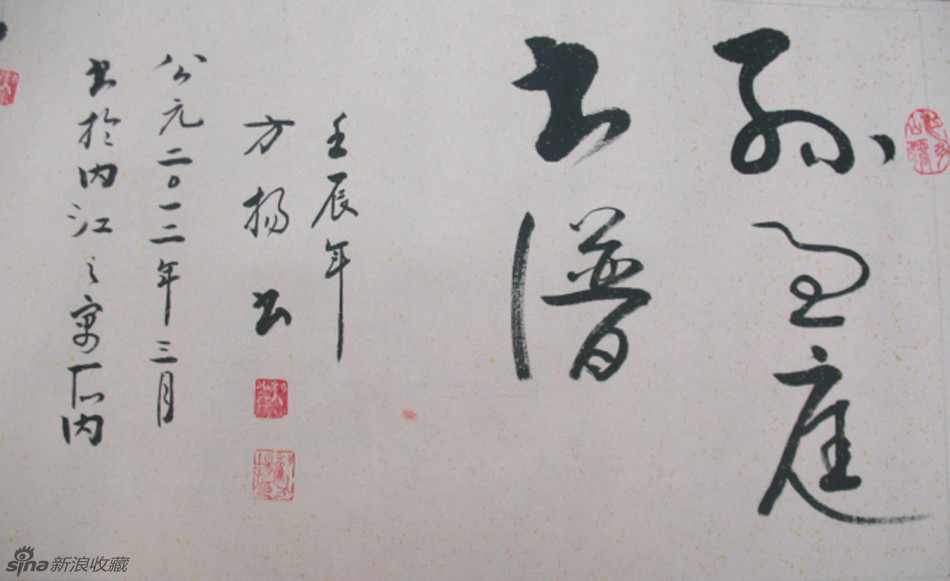 孙过庭
书谱
壬辰年
方扬书
公元二〇一二年三月
书於内江之寓所内
sina新浪收藏